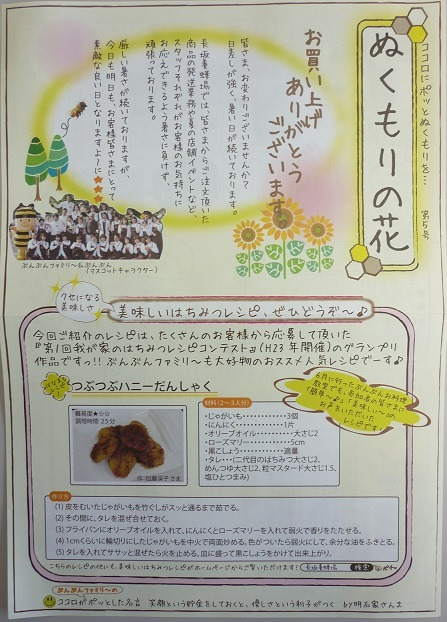 ココロにポッとぬくもりを…
ぬくもりの花
第5号
お買い上げ
ありがとう
ございます。
皆さま、お変わりございませんか？
日差しが強く、暑い日が続いております。
長坂養蜂場では、皆さまからご注文頂いた
商品の発送業務や夏の店舗イベントなど、
スタッフそれぞれがお客様のお気持ちに
お応えできるよう暑さに負けず、
頑張っております。
厳しい暑さが続いておりますが、
今日も明日も、お客様皆さまにとって
素敵な良い日となりますように★★★
ぶんぶんファミリー&ぶんぶん
(マスコットキャラクター)
クセになる
美味しさ
美味しいはちみつレシピ、ぜひどうぞ〜♪
今回ご紹介のレシピは、たくさんのお客様から応募して頂いた
『第1回我が家のはちみつレシピコンテスト』(H23年開催)のグランプリ
作品ですっ!! ぶんぶんファミリーも大好物のおススメ人気レシピでーす♪
つぶつぶハニーだんしゃく
難易度★☆☆
調理時間 25分
作:加藤栄子さま
材料(2〜3人分)
・じゃがいも……………3個
・にんにく………………1片
・オリーブオイル………大さじ2
・ローズマリー…………5cm
・黒こしょう……………適量
・タレ…(二代目のはちみつ大さじ2、
めんつゆ大さじ2、粒マスタード大さじ1.5、
塩ひとつまみ)
6月に行ったぶんぶんお料理
教室でも、参加者の皆さまに
「簡単〜♪」「美味しい〜♪」の
お声をいただいた
レシピです!!
作り方
(1) 皮をむいたじゃがいもを竹ぐしがスッと通るまで茹でる。
(2) その間に、タレを混ぜ合せておく。
(3) フライパンにオリーブオイルを入れて、にんにくとローズマリーを入れて弱火で香りをたたせる。
(4) 1cmくらいに輪切りにしたじゃがいもを中火で両面炒める。色がついたら弱火にして、余分な油をふきとる。
(5) タレを入れてササッと混ぜたら火を止める。皿に盛って黒こしょうをかけて出来上がり。
こちらのレシピの他にも、美味しいはちみつレシピがホームページからご覧いただけます！ 長坂養蜂場 検索
ぶんぶんファミリーの
ココロがポッとした名言 笑顔という貯金をしておくと、優しさという利子がつく by明石家さんま